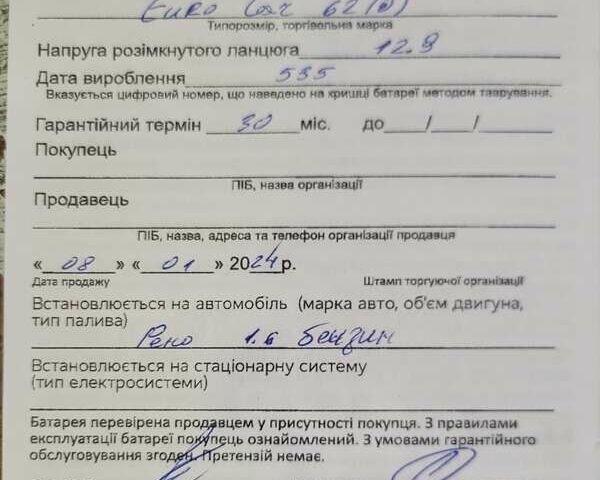 Euro Car 62(0)
Типорозмір, торгівельна марка
Напруга розімкнутого ланцюга 12.9
Дата вироблення 535
Вказується цифровий номер, що наведено на кришці батареї методом таврування.
Гарантійний термін 30 міс. до / /
Покупець
ПІБ, назва організації
Продавець
ПІБ, назва, адреса та телефон організації продавця
« 08 » « 01 » 2024 р.
Дата продажу Штамп торгуючої організації
Встановлюється на автомобіль (марка авто, об'єм двигуна,
тип палива) Рено 1.6 бензин
Встановлюється на стаціонарну систему
(тип електросистеми)
Батарея перевірена продавцем у присутності покупця. З правилами
експлуатації батареї покупець ознайомлений. З умовами гарантійного
обслуговування згоден. Претензій немає.